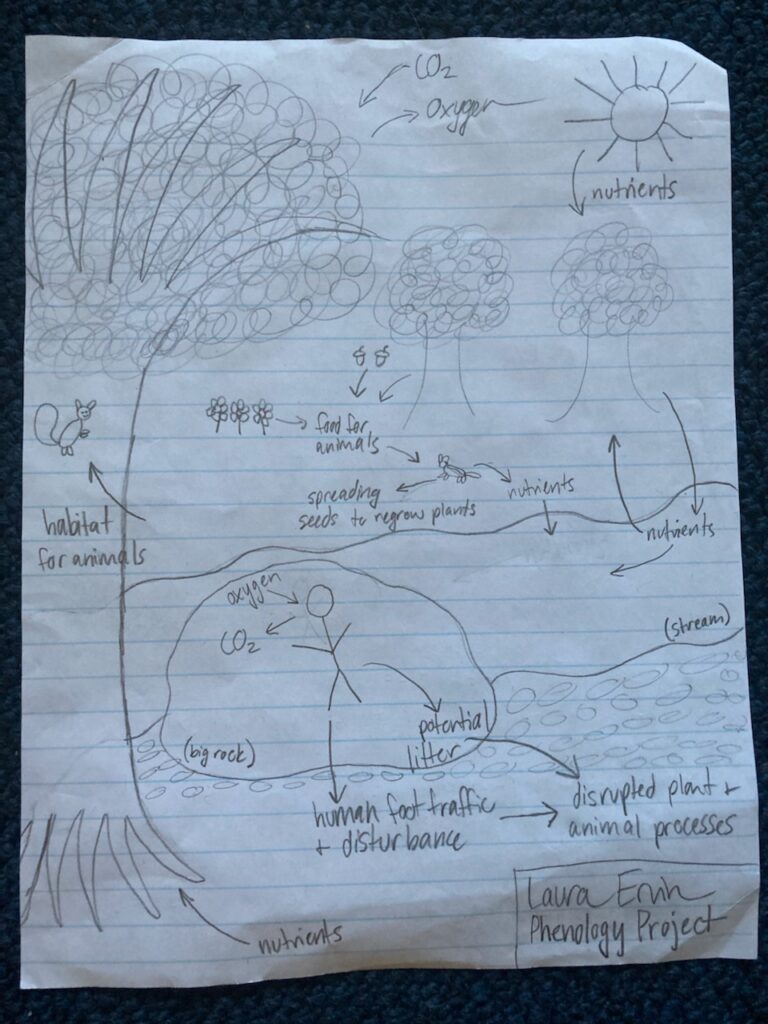 CO2
Oxygen
nutrients
food for
animals
spreading
seeds to regrow plants
nutrients
habitat
for animals
nutrients
oxygen
CO2
(stream)
potential
litter
(big rock)
human foot traffic
+ disturbance
disrupted plant +
animal processes
Laura Ervin
Phenology Project
nutrients